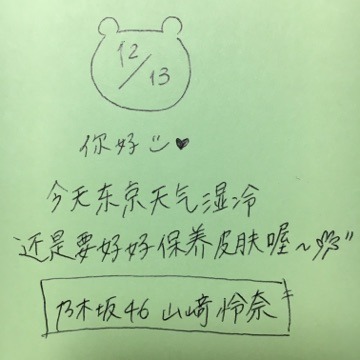 12/13
你好
今天东京天气湿冷
还是要好好保养皮肤喔~
乃木坂46 山﨑怜奈